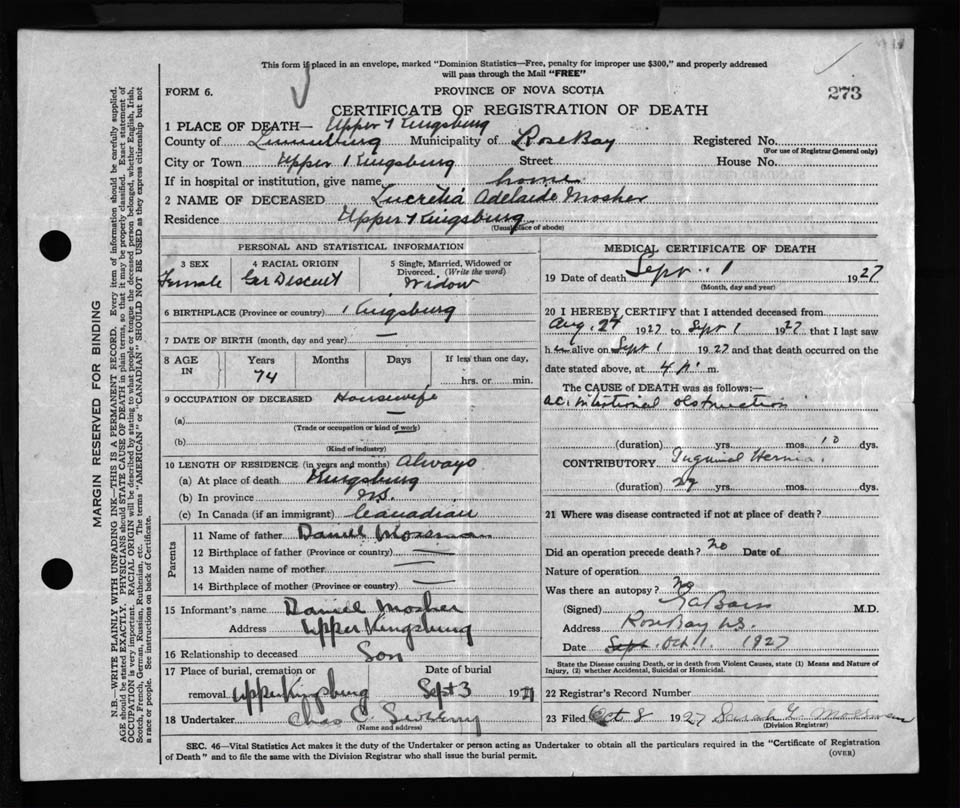 This form if placed in an envelope, marked "Dominion Statistics—Free, penalty for improper use $300," and properly addressed
will pass through the Mail "FREE"
FORM 6.
PROVINCE OF NOVA SCOTIA
273
CERTIFICATE OF REGISTRATION OF DEATH
1 PLACE OF DEATH— Upper Kingsburg
County of Lunenburg Municipality of Rose Bay Registered No.
(For use of Registrar General only)
City or Town Upper Kingsburg Street House No.
If in hospital or institution, give name home
2 NAME OF DECEASED Lucretia Adelaide Mosher
Residence Upper Kingsburg
(Usual place of abode)
PERSONAL AND STATISTICAL INFORMATION
3 SEX
Female
4 RACIAL ORIGIN
Ger Descent
5 Single, Married, Widowed or
Divorced. (Write the word)
Widow
6 BIRTHPLACE (Province or country) Kingsburg
7 DATE OF BIRTH (month, day and year) —
8 AGE
IN
Years
74
Months
Days
If less than one day,
hrs. or min.
9 OCCUPATION OF DECEASED Housewife
(a)
(Trade or occupation or kind of work)
(b)
(Kind of industry)
10 LENGTH OF RESIDENCE (in years and months) Always
(a) At place of death Kingsburg
(b) In province N.S.
(c) In Canada (if an immigrant) Canadian
Parents
11 Name of father Daniel Mossman
12 Birthplace of father (Province or country) —
13 Maiden name of mother —
14 Birthplace of mother (Province or country) —
15 Informant's name Daniel Mosher
Address Upper Kingsburg
16 Relationship to deceased Son
17 Place of burial, cremation or Date of burial
removal Upper Kingsburg Sept 3 1927
18 Undertaker Chas C.
(Name and address)
MEDICAL CERTIFICATE OF DEATH
19 Date of death Sept 1 1927
(Month, day and year)
20 I HEREBY CERTIFY that I attended deceased from
Aug. 27 1927 to Sept 1 1927 that I last saw
h er alive on Sept 1 1927 and that death occurred on the
date stated above, at 4 A m.
The CAUSE of DEATH was as follows:—
ac. intestional obstruction
(duration) yrs. mos. 10 dys.
CONTRIBUTORY Inguinal Hernia.
(duration) 27 yrs. mos. dys.
21 Where was disease contracted if not at place of death?
Did an operation precede death? No Date of
Nature of operation
Was there an autopsy? No
(Signed) M.D.
Address Rose Bay N.S.
Date Sept. Oct 1. 1927
State the Disease causing Death, or in death from Violent Causes, state (1) Means and Nature of
Injury, (2) whether Accidental, Suicidal or Homicidal.
22 Registrar's Record Number
23 Filed Oct 8 1927 Sarah Mossman
(Division Registrar)
SEC. 46—Vital Statistics Act makes it the duty of the Undertaker or person acting as Undertaker to obtain all the particulars required in the "Certificate of Registration
of Death" and to file the same with the Division Registrar who shall issue the burial permit.
(OVER)
MARGIN RESERVED FOR BINDING
N.B.—WRITE PLAINLY WITH UNFADING INK—THIS IS A PERMANENT RECORD. Every item of information should be carefully supplied.
AGE should be stated EXACTLY. PHYSICIANS should STATE CAUSE OF DEATH in plain terms, so that it may be properly classified. Exact statement of
OCCUPATION is very important. RACIAL ORIGIN will be described by stating to what people or tongue the deceased person belonged, whether English, Irish,
Scotch, French, German, Russian, Ruthenian, etc. The terms "AMERICAN" or "CANADIAN" SHOULD NOT BE USED as they express citizenship but not
a race or people. See instructions on back of Certificate.